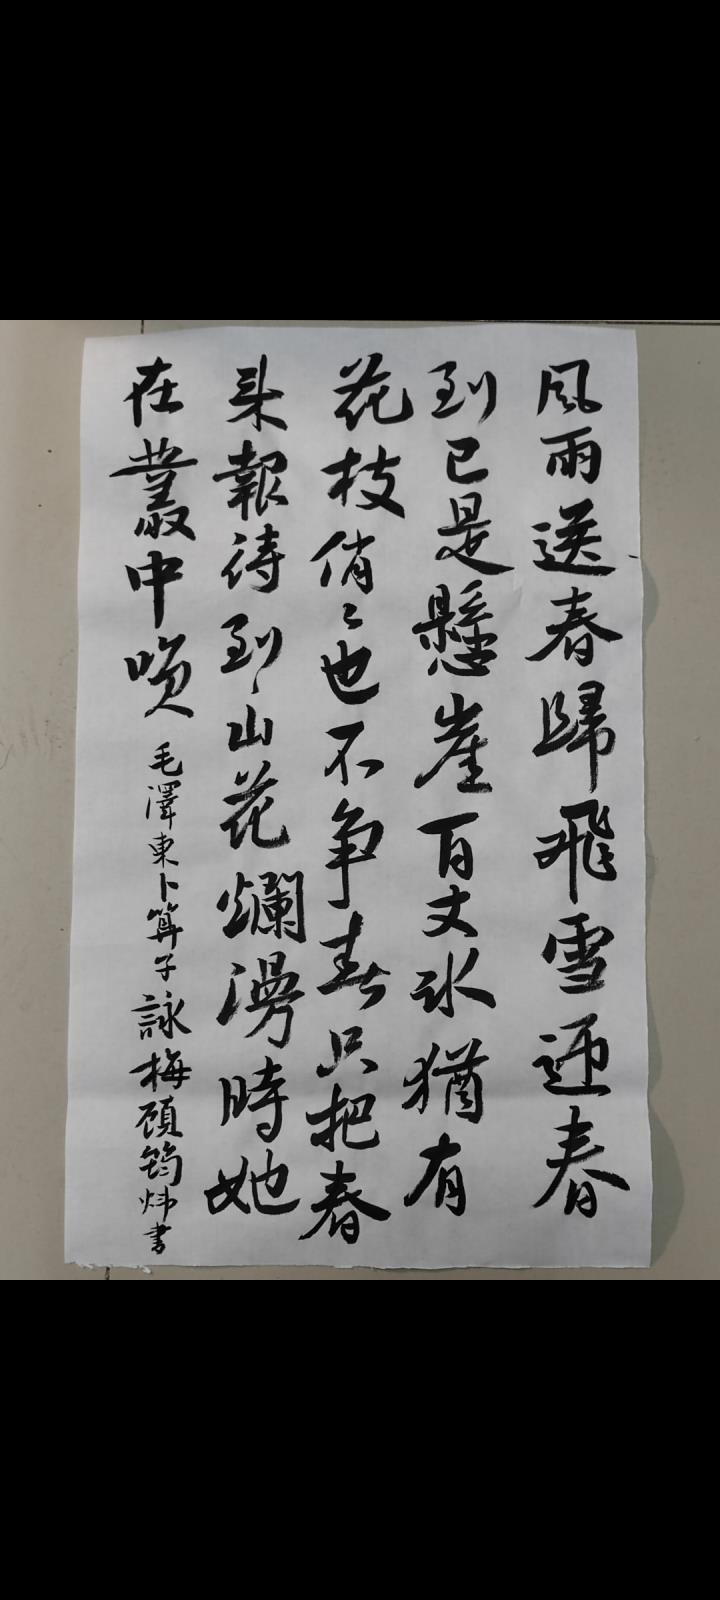 風雨送春歸飛雪迎春
到已是懸崖百丈冰猶有
花枝俏〻也不争春只把春
来報待到山花爛漫時她
在叢中唤毛澤東卜算子詠梅顧筠炜書